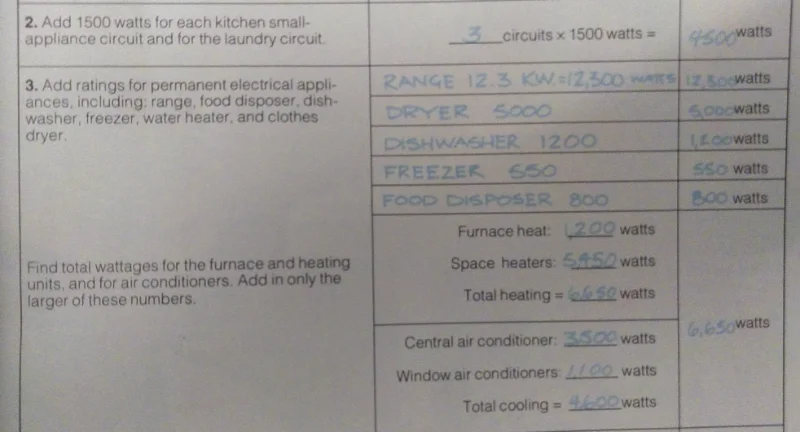 2. Add 1500 watts for each kitchen small-
appliance circuit and for the laundry circuit.
3 circuits x 1500 watts = 4500 watts
3. Add ratings for permanent electrical appli-
ances, including: range, food disposer, dish-
washer, freezer, water heater, and clothes
dryer.
RANGE 12.3 KW.=12,300 WATTS 12,300 watts
DRYER 5000 5,000 watts
DISHWASHER 1200 1,200 watts
FREEZER 550 550 watts
FOOD DISPOSER 800 800 watts
Find total wattages for the furnace and heating
units, and for air conditioners. Add in only the
larger of these numbers.
Furnace heat: 1,200 watts
Space heaters: 5,450 watts
Total heating = 6,650 watts
Central air conditioner: 3,500 watts
Window air conditioners: 1,100 watts
Total cooling = 4,600 watts
6,650 watts